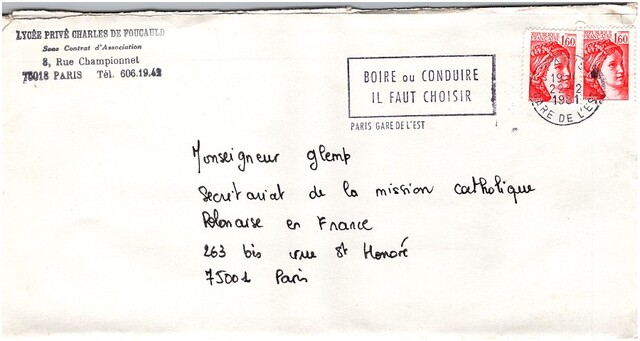 LYCÉE PRIVÉ CHARLES DE FOUCAULD
Sous Contrat d'Association
8, Rue Championnet
75018 PARIS Tél. 606.19.42
BOIRE ou CONDUIRE
IL FAUT CHOISIR
PARIS GARE DE L'EST
1,60
1,60
1981
GARE DE L'EST
Monseigneur Glemp
Secrétariat de la mission catholique
Polonaise en France
263 bis rue St Honoré
75001 Paris